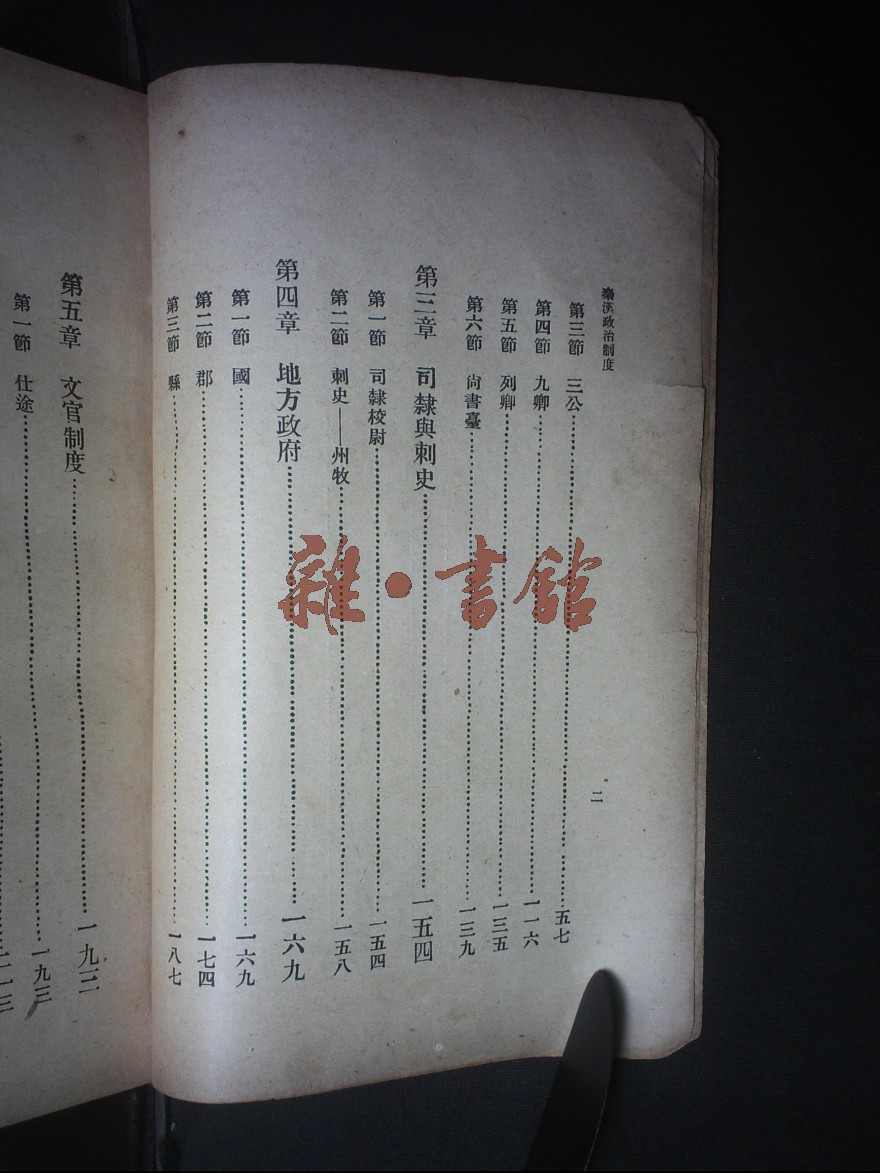 秦漢政治制度
二
第三節 三公……五七
第四節 九卿……一一六
第五節 列卿……一三五
第六節 尙書臺……一三九
第三章 司隸與刺史……一五四
第一節 司隸校尉……一五四
第二節 刺史——州牧……一五八
第四章 地方政府……一六九
第一節 國……一六九
第二節 郡……一七四
第三節 縣……一八七
第五章 文官制度……一九三
第一節 仕途……一九三
雜·書館